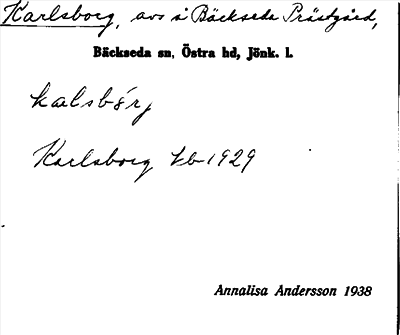 Karlsborg, avs å Bäckseda Prästgård,
Bäckseda sn, Östra hd, Jönk. l.
kalsbórj
Karlsborg Jb 1929
Annalisa Andersson 1938